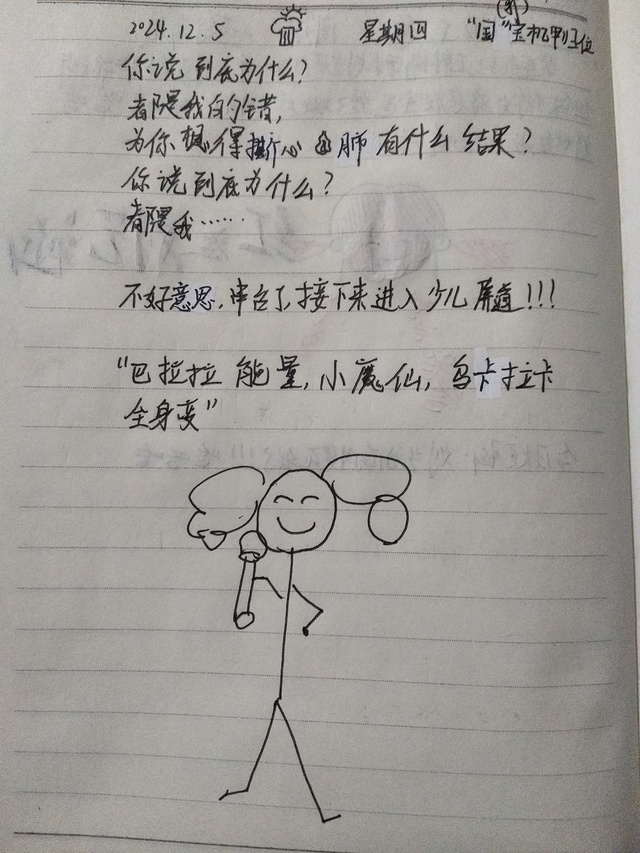 2024.12.5 星期四 "国"宝机甲归位
你说到底为什么?
都是我的错,
为你想得撕心 肺有什么结果?
你说到底为什么?
都是我……
不好意思,串台了,接下来进入少儿频道!!!
"巴拉拉能量,小魔仙,乌卡拉卡
全身变"